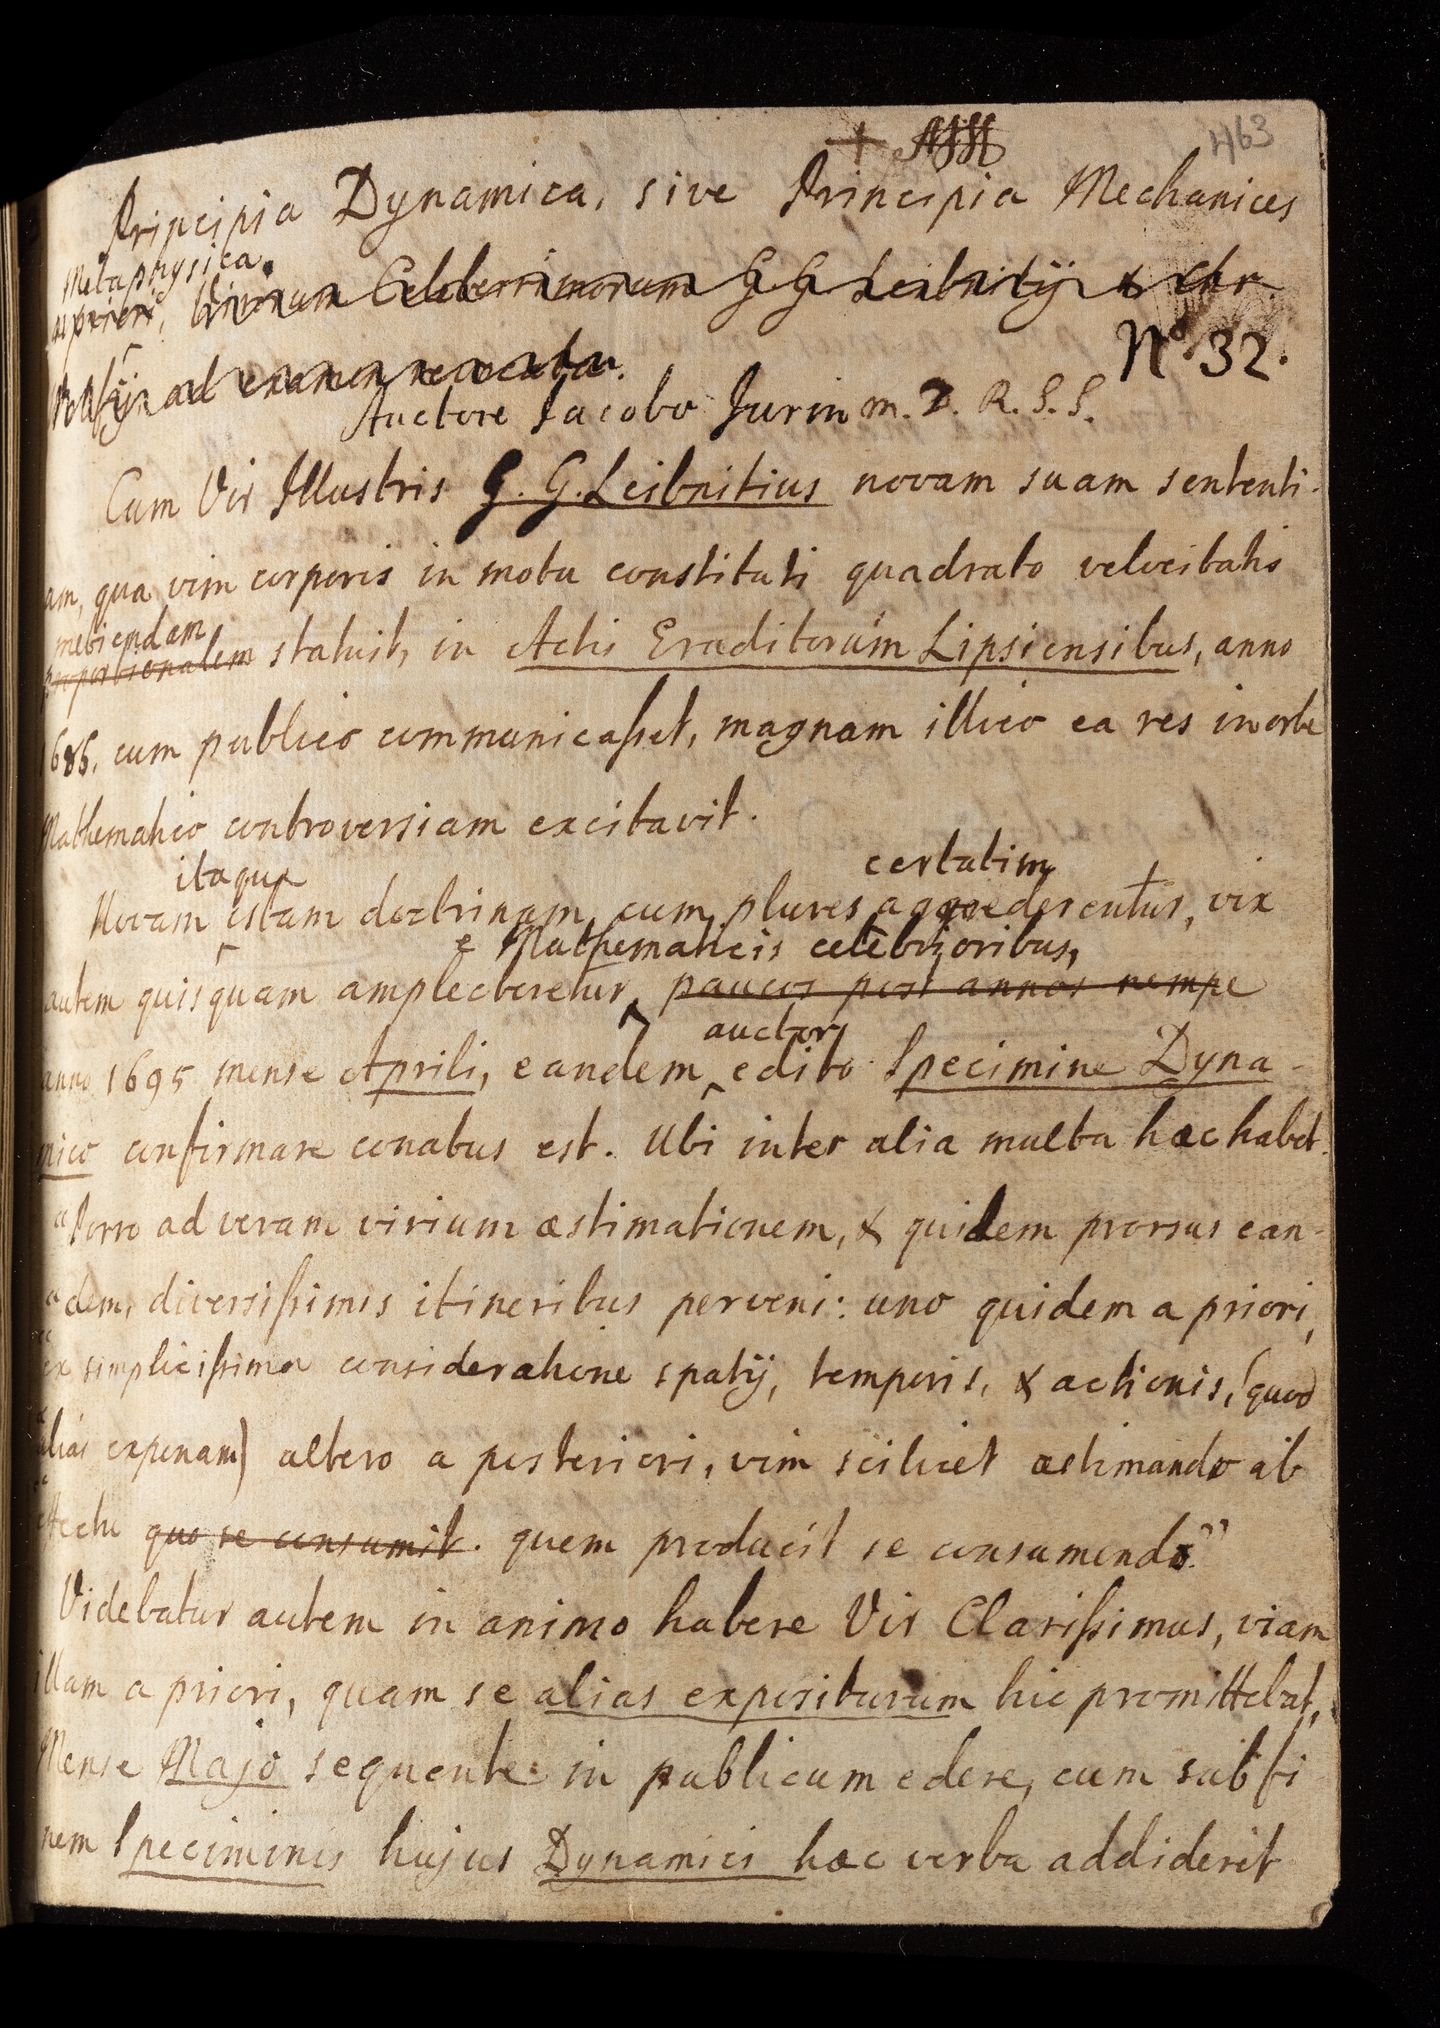 463
Principia Dynamica, sive Principia Mechanices
Metaphysica.
a priori, Virorum Celeberrimorum G. G. Leibnitij & Chr.
No. 32.
Wolfij ad examen revocata.
Auctore Jacobo Jurin M. D. R. S. S.
Cum Vir Illustris G. G. Leibnitius novam suam sententi-
am, qua vim corporis in motu constituti quadrato velocitatis
metiendam
proportionalem statuit, in Actis Eruditorum Lipsiensibus, anno
1686. cum publico communicasset, magnam illico ea res in orbe
Mathematico controversiam excitavit.
itaque certatim
Novam istam doctrinam cum plures aggrederentur, vix
e Mathematicis celebrioribus,
autem quisquam amplecteretur, paucos post annos nempe
auctor
anno 1695 mense Aprili, eandem edito Specimine Dyna-
mico confirmare conatus est. Ubi inter alia multa haec habet.
"Porro ad veram virium aestimationem, & quidem prorsus ean-
"dem, diversissimis itineribus perveni: uno quidem a priori,
"ex simplicissima consideratione spatij, temporis, & actionis, (quod
"alias exponam) altero a posteriori, vim scilicet aestimando ab
"effectu quo se consumit. quem producit se consumendo."
Videbatur autem in animo habere Vir Clarissimus, viam
illam a priori, quam se alias expositurum hic promittebat,
Mense Majo sequente in publicum edere, cum sub fi
nem Speciminis hujus Dynamici haec verba addiderit